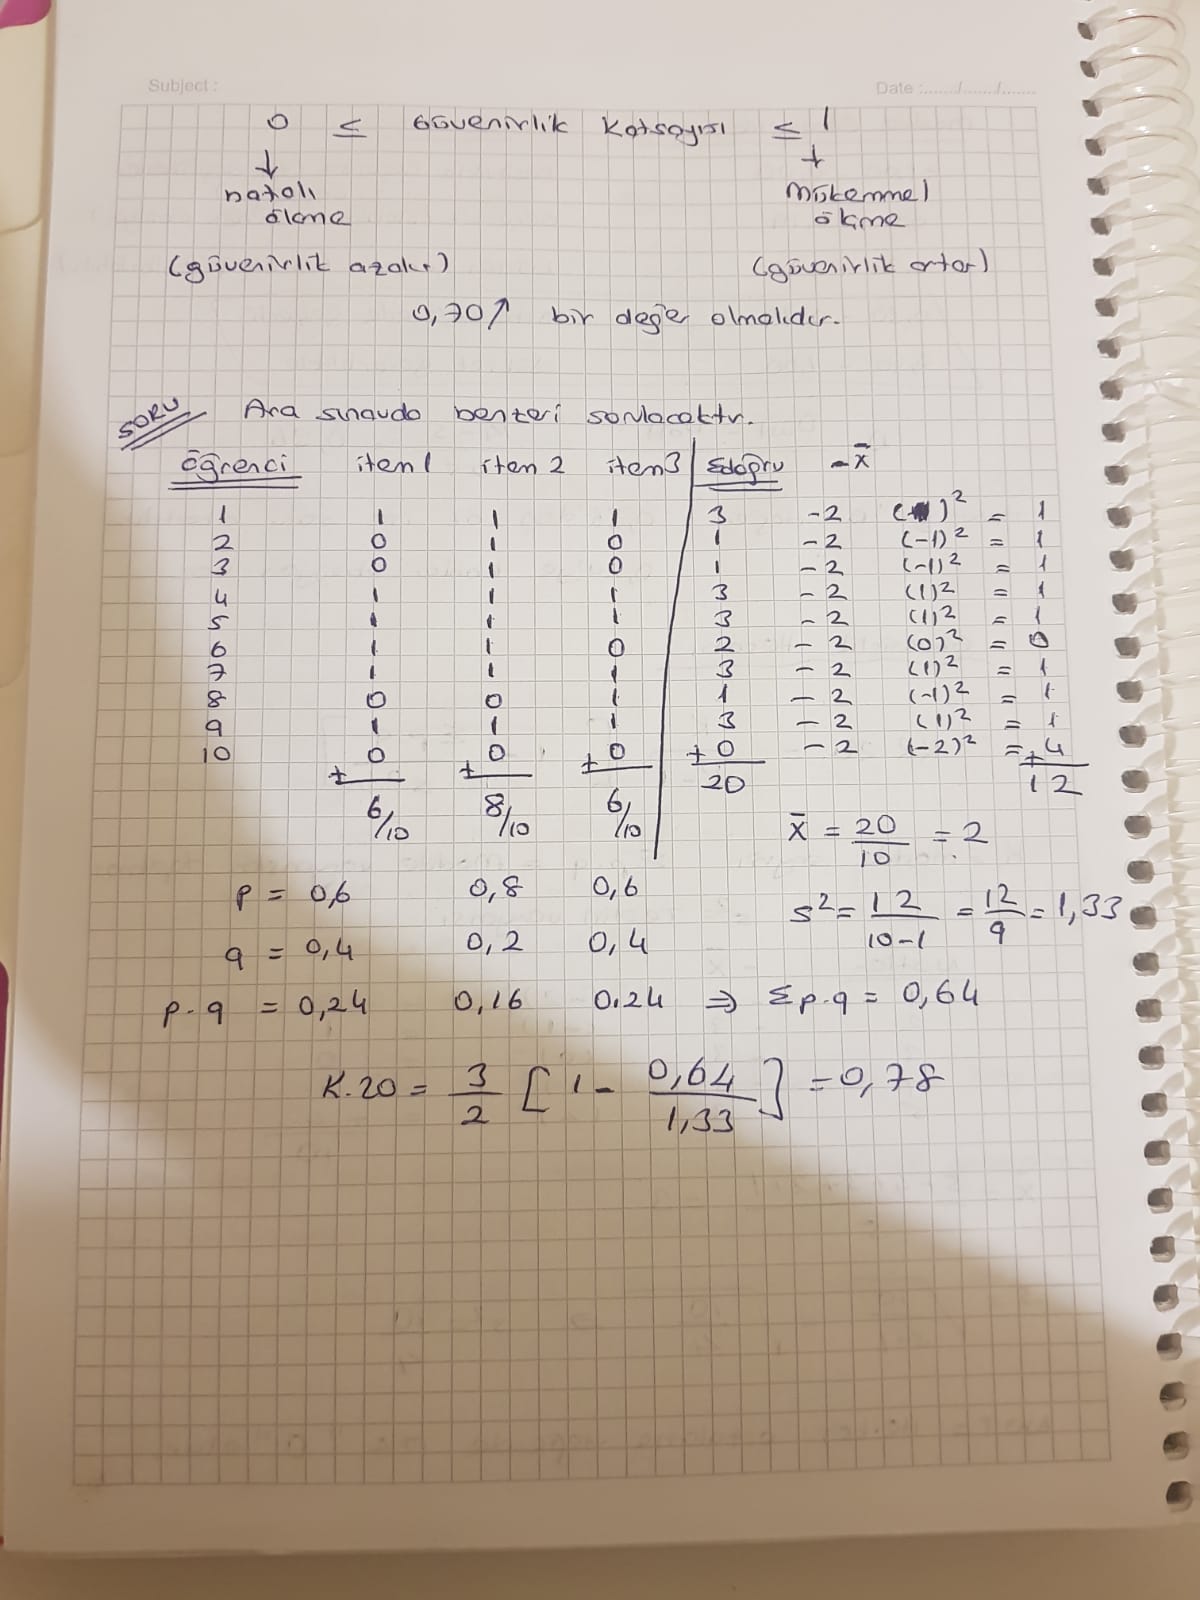 Subject : Date :....../....../......
0 ≤ Güvenirlik Katsayısı ≤ 1
↓ ↓
hatalı Mükemmel
ölçme ölçme
(güvenirlik azalır) (güvenirlik artar)
0,70↑ bir değer olmalıdır.
SORU Ara sınavda benzeri sorulacaktır.
Öğrenci item1 item 2 item3 Σdoğru - x̄
1 1 1 1 3 - 2 (1)² = 1
2 0 1 0 1 - 2 (-1)² = 1
3 0 1 0 1 - 2 (-1)² = 1
4 1 1 1 3 - 2 (1)² = 1
5 1 1 1 3 - 2 (1)² = 1
6 1 1 0 2 - 2 (0)² = 0
7 1 1 1 3 - 2 (1)² = 1
8 0 0 1 1 - 2 (-1)² = 1
9 1 1 1 3 - 2 (1)² = 1
10 + 0 + 0 + 0 + 0 - 2 (-2)² = + 4
6/10 8/10 6/10 20 12
x̄ = 20/10 = 2
p = 0,6 0,8 0,6
s² = 12/10-1 = 12/9 = 1,33
q = 0,4 0,2 0,4
p.q = 0,24 0,16 0.24 ⇒ Σp.q = 0,64
K.20 = 3/2 [1 - 0,64/1,33] = 0,78